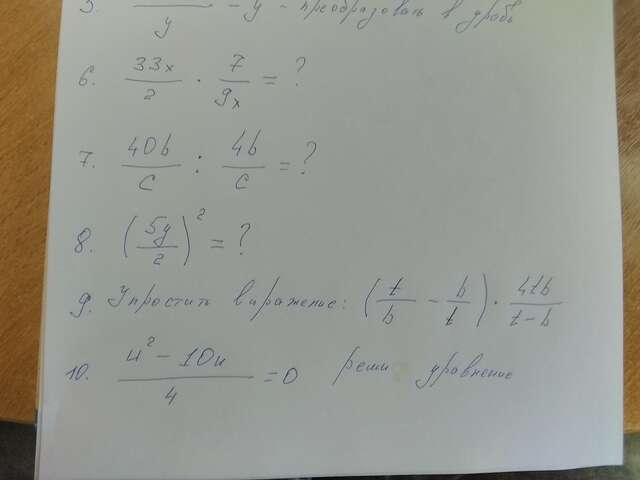 5. ―/y - y - преобразовать в дробь
6. 33x/2 · 7/9x = ?
7. 40b/c : 4b/c = ?
8. (5y/2)² = ?
9. Упростить выражение: (t/b - b/t) · 4tb/t-b
10. u² - 10u/4 = 0 реши уравнение